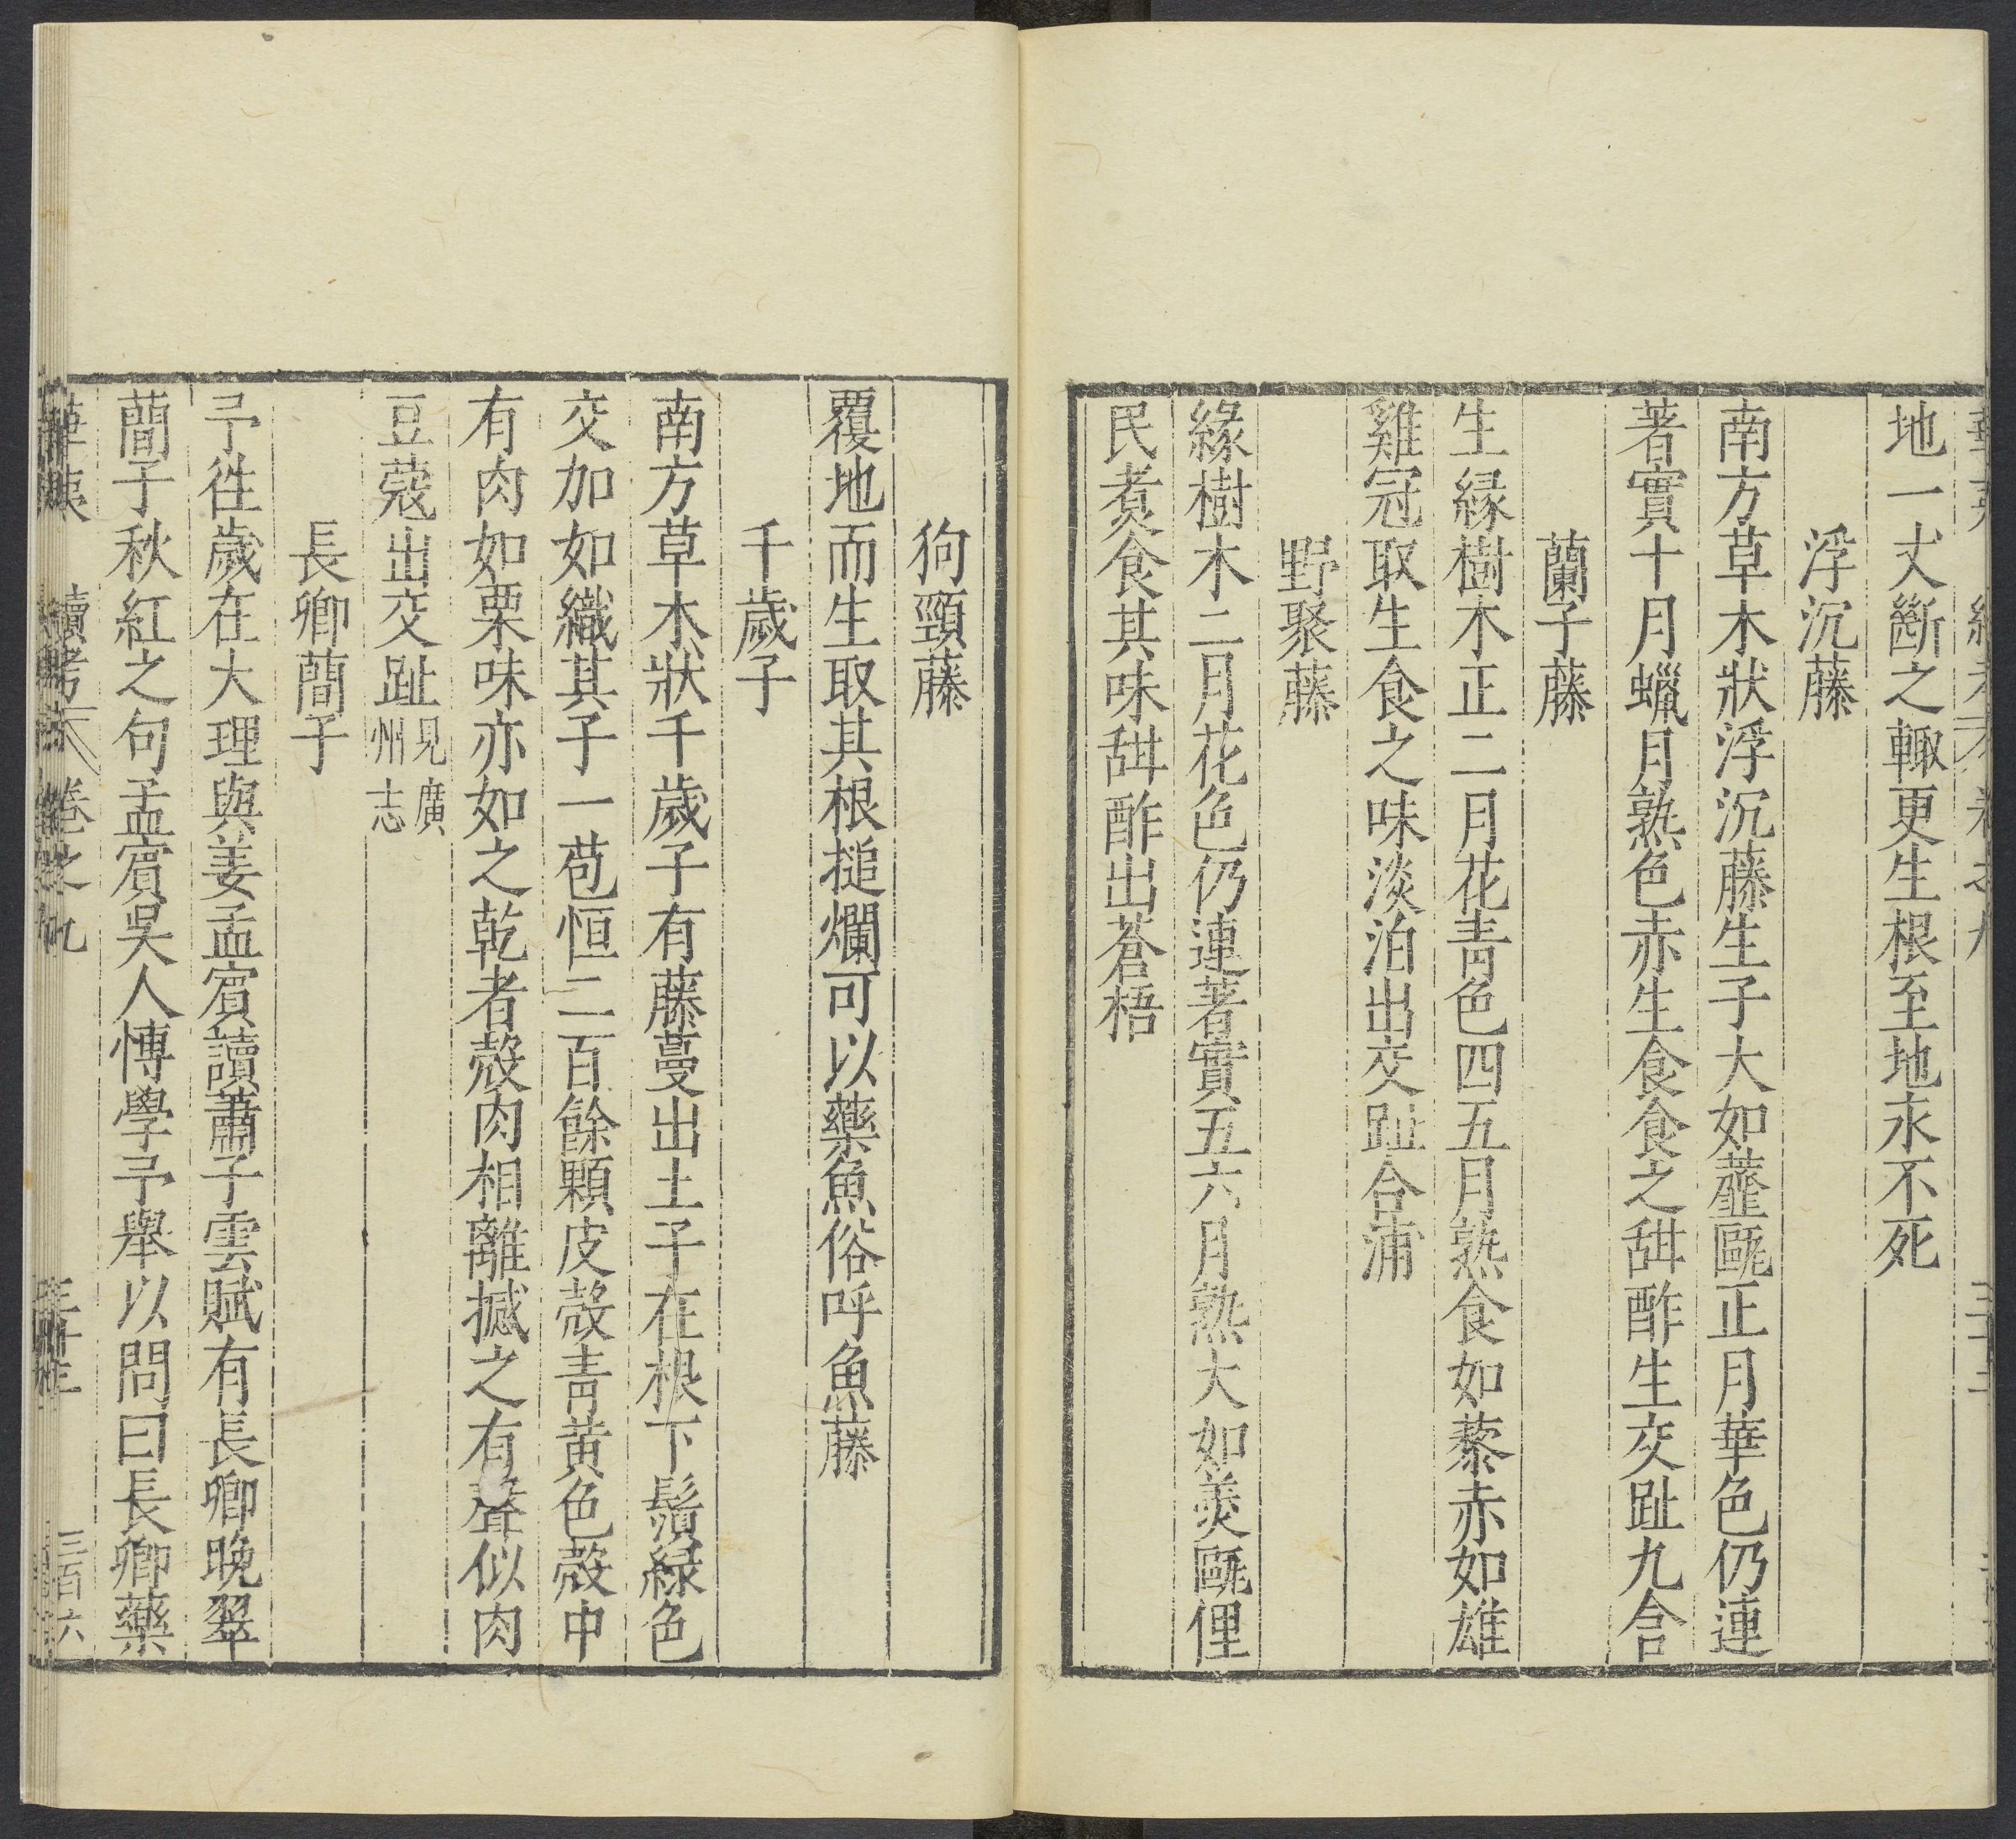 地一丈斷之輙更生根至地永不死
浮沉藤
南方草木狀浮沉藤生子大如虀甌正月華色仍連
著實十月蠟月熟色赤生食食之甜酢生交趾九合
蘭子藤
生緣樹木正二月花青色四五月熟食如藜赤如雄
雞冠取生食之味淡泊出交趾合浦
野聚藤
緣樹木二月花色仍連著實五六月熟大如羹甌俚
民煮食其味甜酢出蒼梧
狗頸藤
覆地而生取其根搥爛可以藥魚俗呼魚藤
千歲子
南方草木狀千歲子有藤蔓出土子在根下鬚綠色
交加如織其子一苞恒二百餘顆皮殼青黃色殼中
有肉如栗味亦如之乾者殼肉相離撼之有聲似肉
豆蔻出交趾見廣州志
長卿蕳子
予徃歲在大理與姜孟賓讀蕭子雲賦有長卿晚翠
蕳子秋紅之句孟賓吳人愽學予舉以問曰長卿藥
續考 卷之九
三百六